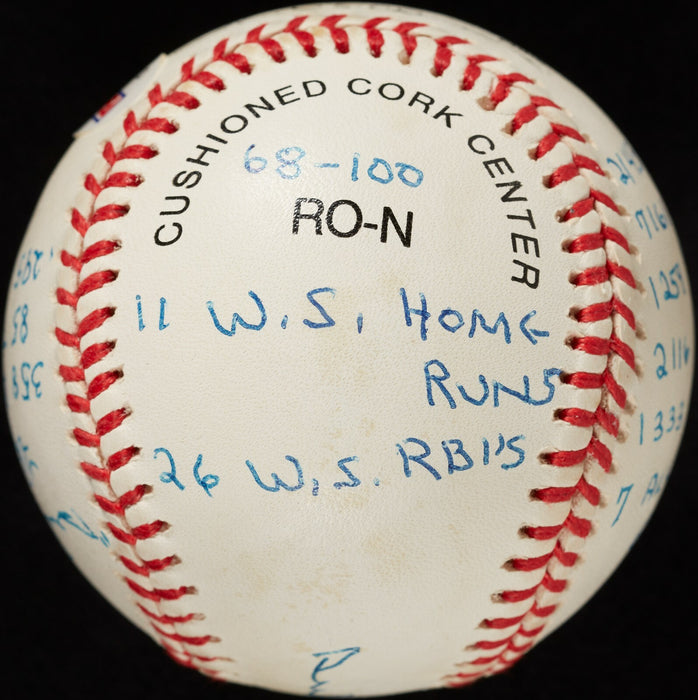 CUSHIONED CORK CENTER
68-100
RO-N
11 W.S. HOME
RUNS
26 W.S. RBI'S
358
716
2116
1333
7